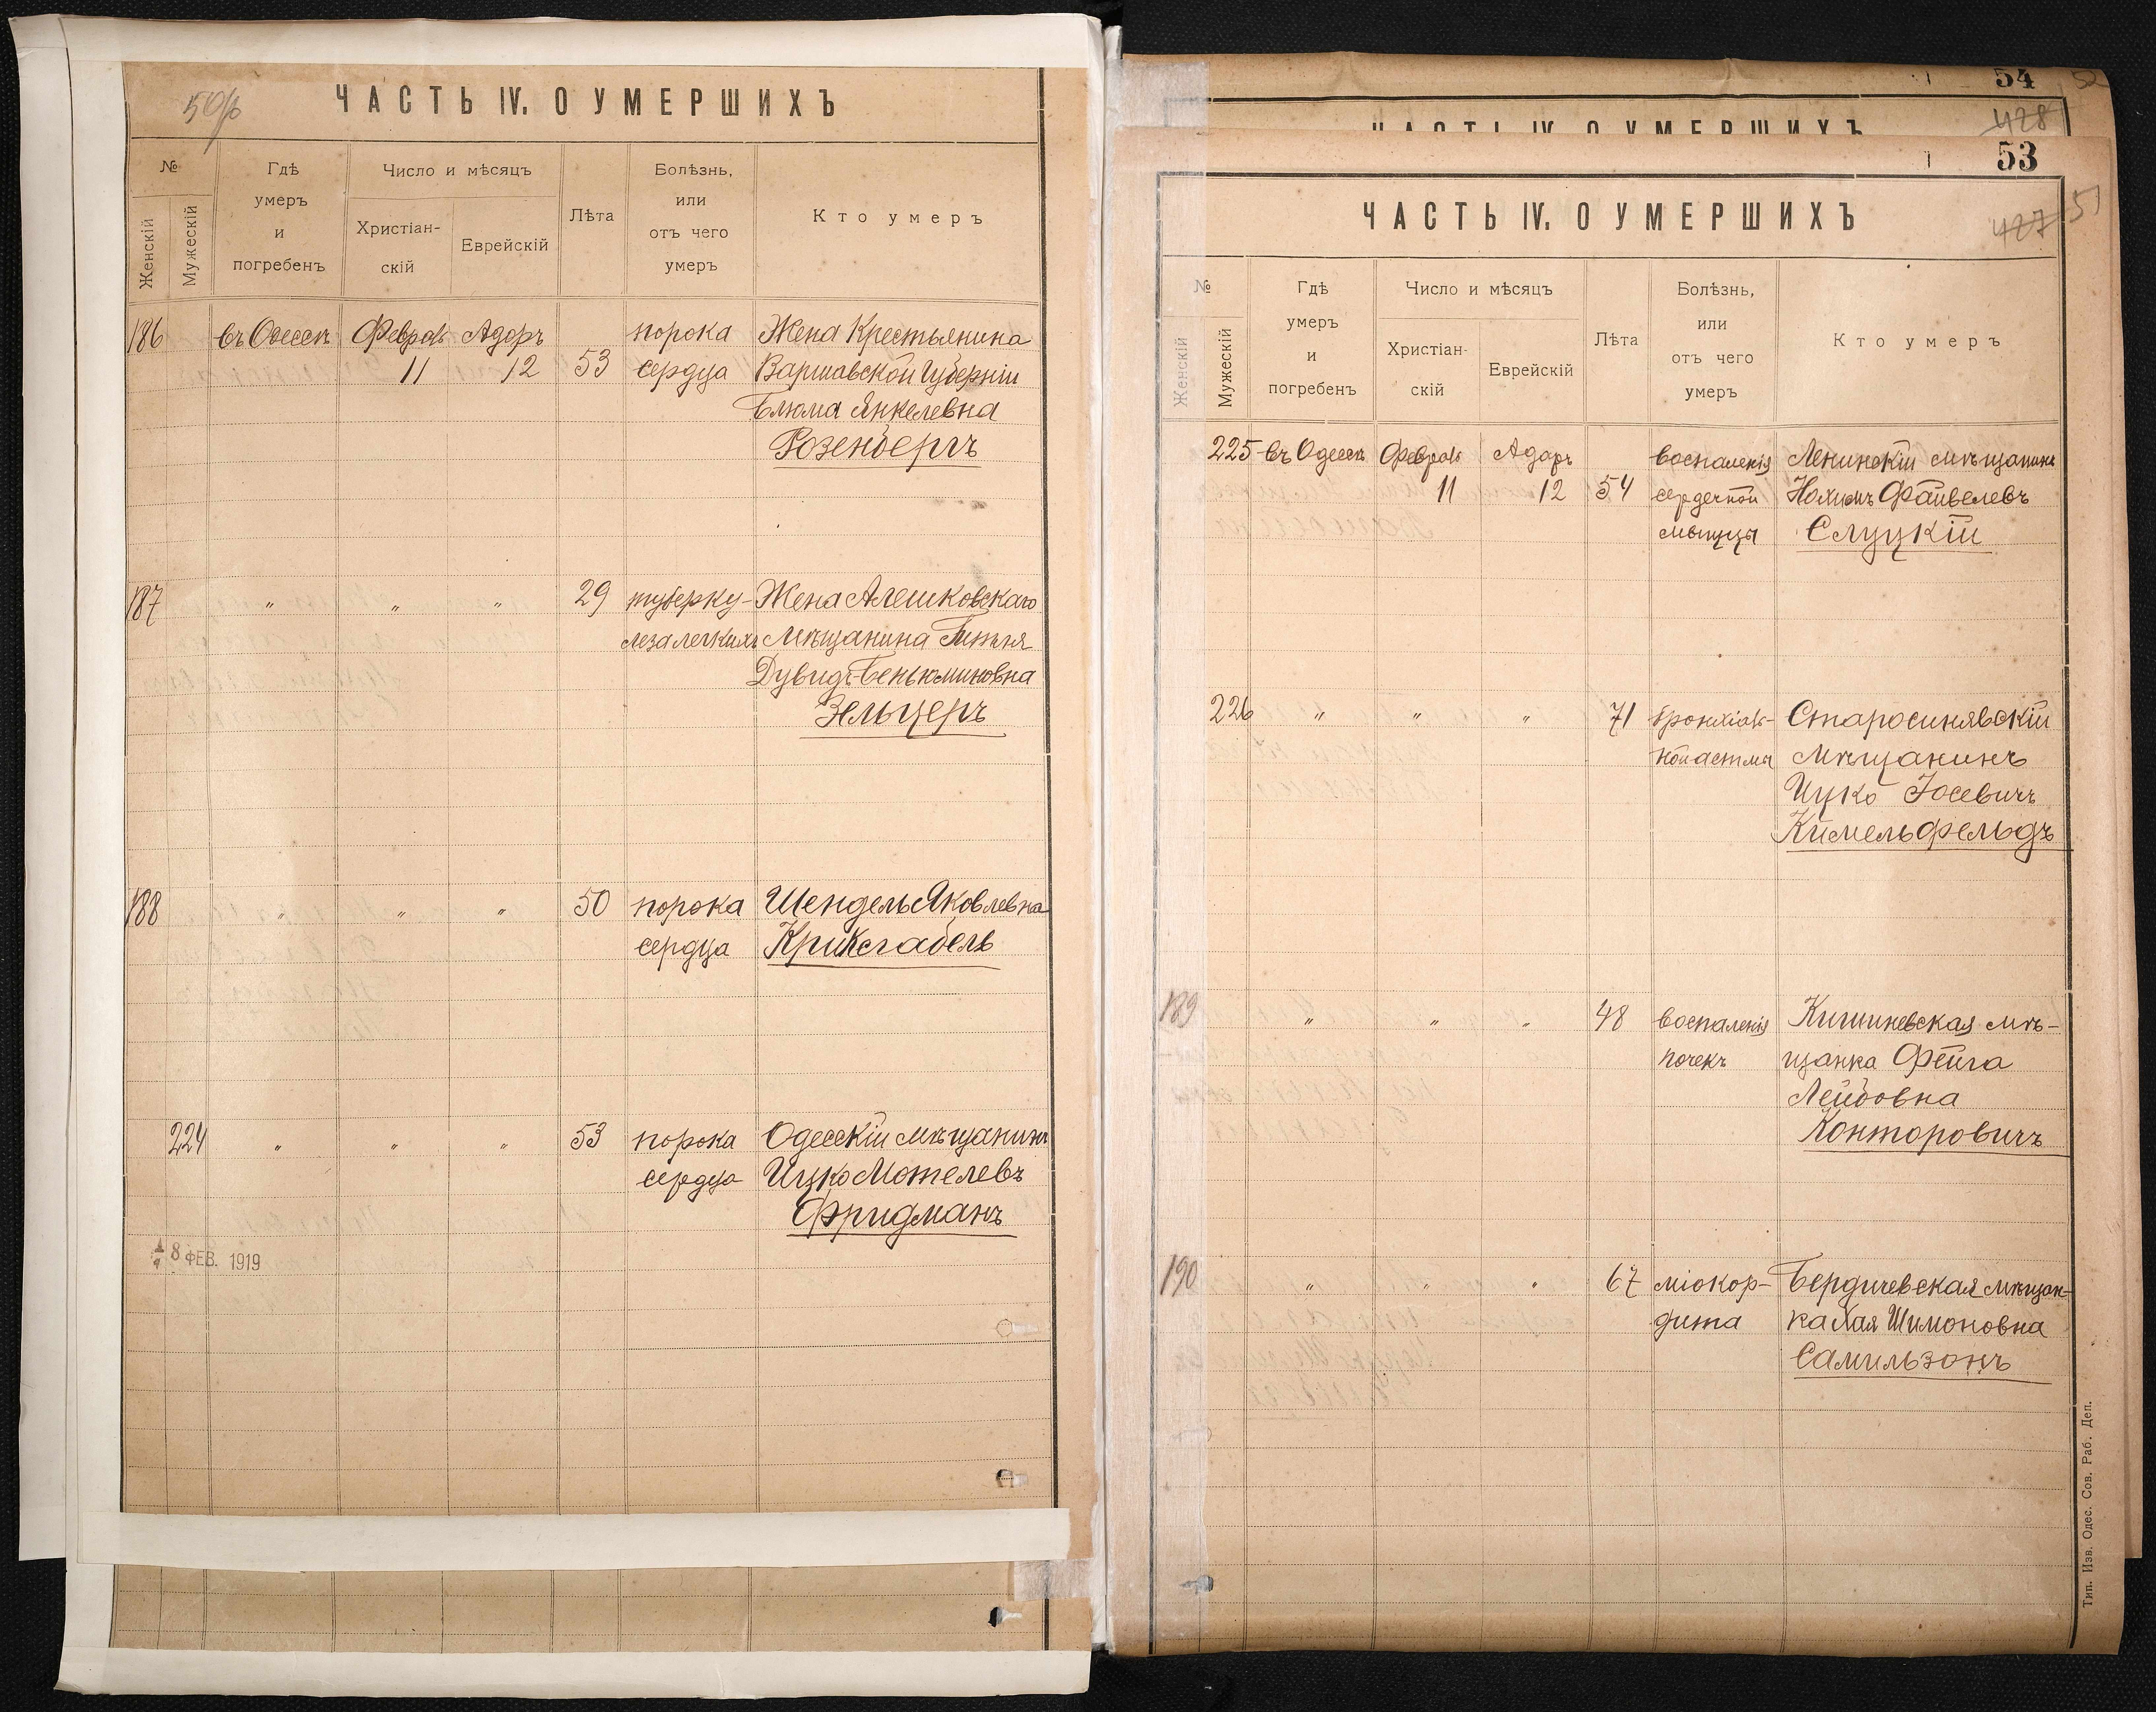 50/об
ЧАСТЬ IV. О УМЕРШИХЪ
№
Женскій
Мужескій
Гдѣ умеръ и погребенъ
Число и мѣсяцъ
Христіан-скій
Еврейскій
Лѣта
Болѣзнь, или отъ чего умеръ
Кто умеръ
186 въ Одессѣ Феврал Адоръ порока Жена Крестьянина
11 12 53 сердца Варшавской Губерніи
Блюма Янкелевна
Розенбергъ
187 " " " 29 туберку- Жена Алешковскаго
леза легкихъ Мѣщанина
Дувидъ-Беньюминовна
Зельцеръ
188 " " " 50 порока Шендель Яковлевна
сердца Криксгабель
224 " " " 53 порока Одесскій мѣщанинъ
сердца Ицко Мотелевъ
Фридманъ
8 ФЕВ. 1919
54
52
428
ЧАСТЬ IV. О УМЕРШИХЪ
53
51
427
ЧАСТЬ IV. О УМЕРШИХЪ
№
Женскій
Мужескій
Гдѣ умеръ и погребенъ
Число и мѣсяцъ
Христіан-скій
Еврейскій
Лѣта
Болѣзнь, или отъ чего умеръ
Кто умеръ
225 въ Одессѣ Феврал Адаръ воспаленія Ленинскій мѣщанинъ
11 12 54 сердечной Нохимъ Файвелевъ
мышцы Слуцкій
226 " " " 71 бронхіаль- Старосинявскій
ной астмы мѣщанинъ
Ицко Іосевичъ
Кимельфельдъ
189 " " " 48 воспаленія Кишиневская мѣ-
почекъ щанка Фейга
Лейбовна
Конторовичъ
190 " " " 67 міокор- Бердичевская мѣщан-
дита ка Хая Шимоновна
Самильзонъ
Тип. Изв. Одес. Сов. Раб. Деп.